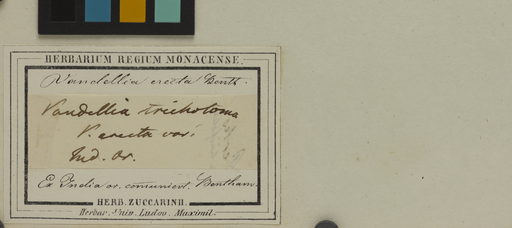 HERBARIUM REGIUM MONACENSE.
Vandellia erecta Benth.
Vandellia trichotoma
V. erecta var:
Ind. Or.
Ex India or. communicvt. Bentham.
HERB. ZUCCARINII.
Herbar. Univ. Ludov. Maximil.